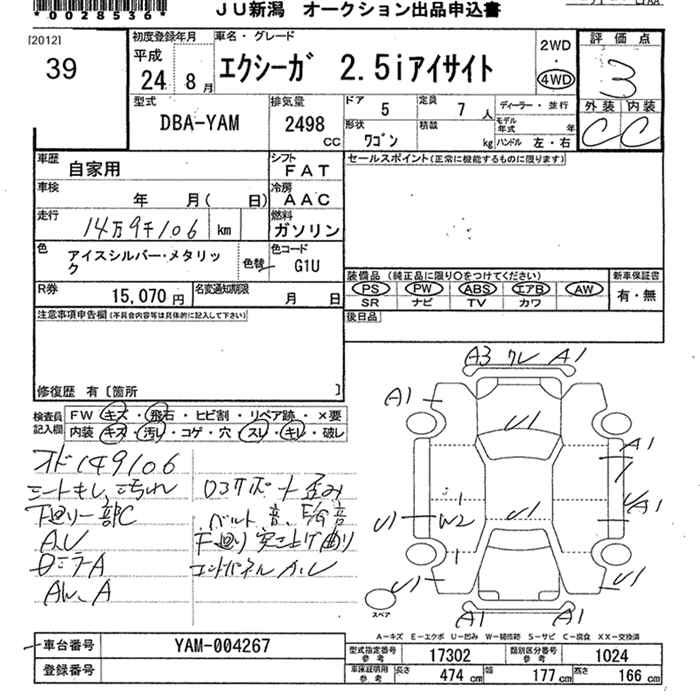 *0028536* JU新潟 オークション出品申込書
[2012] 初度登録年月 車名・グレード 2WD 評価点
39 平成 24 8月 エクシーガ 2.5iアイサイト 4WD 3
型式 排気量 ドア 5 定員 7人 ディーラー・並行 外装 内装
DBA-YAM 2498cc 形状 ワゴン 積載 kg モデル年式 年 ハンドル 左・右 C C
車歴 自家用 シフト FAT セールスポイント(正常に機能するものに限ります)
車検 年 月( 日) 冷房 AAC
走行 14万9千106 km 燃料 ガソリン
色 アイスシルバー・メタリック 色替 色コード G1U
装備品(純正品に限り○をつけてください) 新車保証書
R券 15,070円 名変通知期限 月 日 PS PW ABS エアB AW 有・無
SR ナビ TV カワ
注意事項申告欄(不具合内容等は具体的に記入して下さい) 後日品
修復歴 有[箇所 ]
検査員記入欄 FW キズ・飛石・ヒビ割・リペア跡・×要
内装 キズ・汚レ・コゲ・穴・スレ・キレ・破レ
A3 ワレ A1
A1
U1
A1
オド149106
シートキレ、汚れ
下廻り一部C
A,U
ロコサポート歪み
ベルト音、E/G音
下廻り突き上げ曲り
コアパネルA,U
U1 W2 U1 A1
1
1
U1 U1
A1 A1
スペア
A-キズ E-エクボ U-凹み W-補修跡 S-サビ C-腐食 XX-交換済
車台番号 YAM-004267
登録番号
型式指定番号 参考 17302 類別区分番号 参考 1024
車庫証明用 参考 長さ 474cm 幅 177cm 高さ 166cm